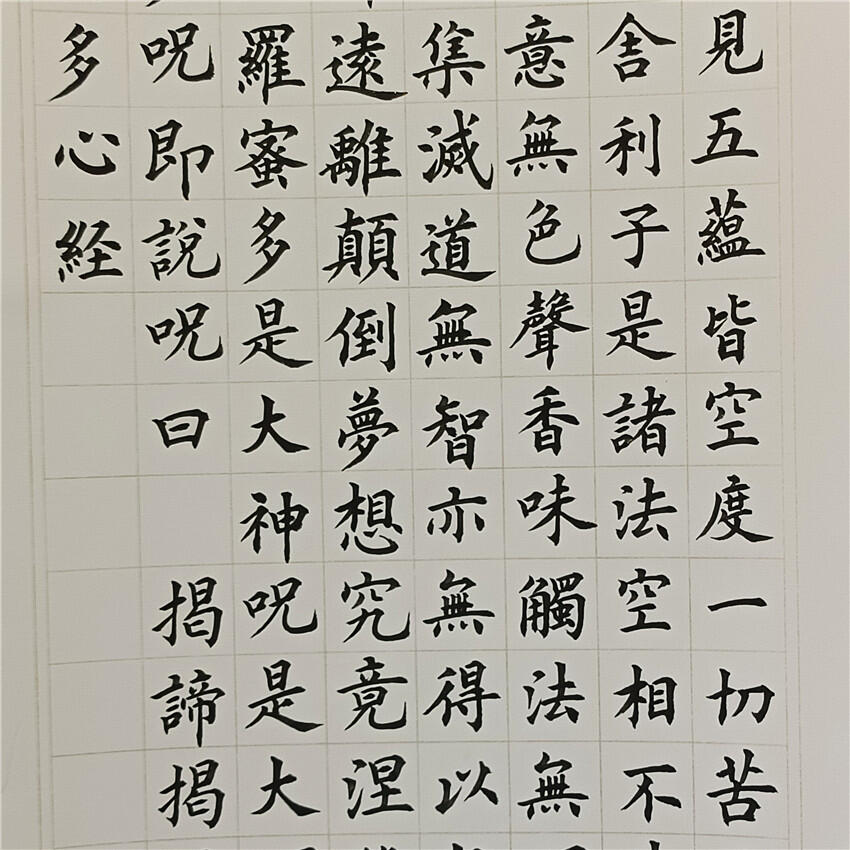 見五蘊皆空度一切苦
舍利子是諸法空相不
意無色聲香味觸法無
集滅道無無智亦無得以
遠離顛倒夢想究竟涅
羅蜜多是大神呪是大
呪即說呪曰 揭諦揭
多心経